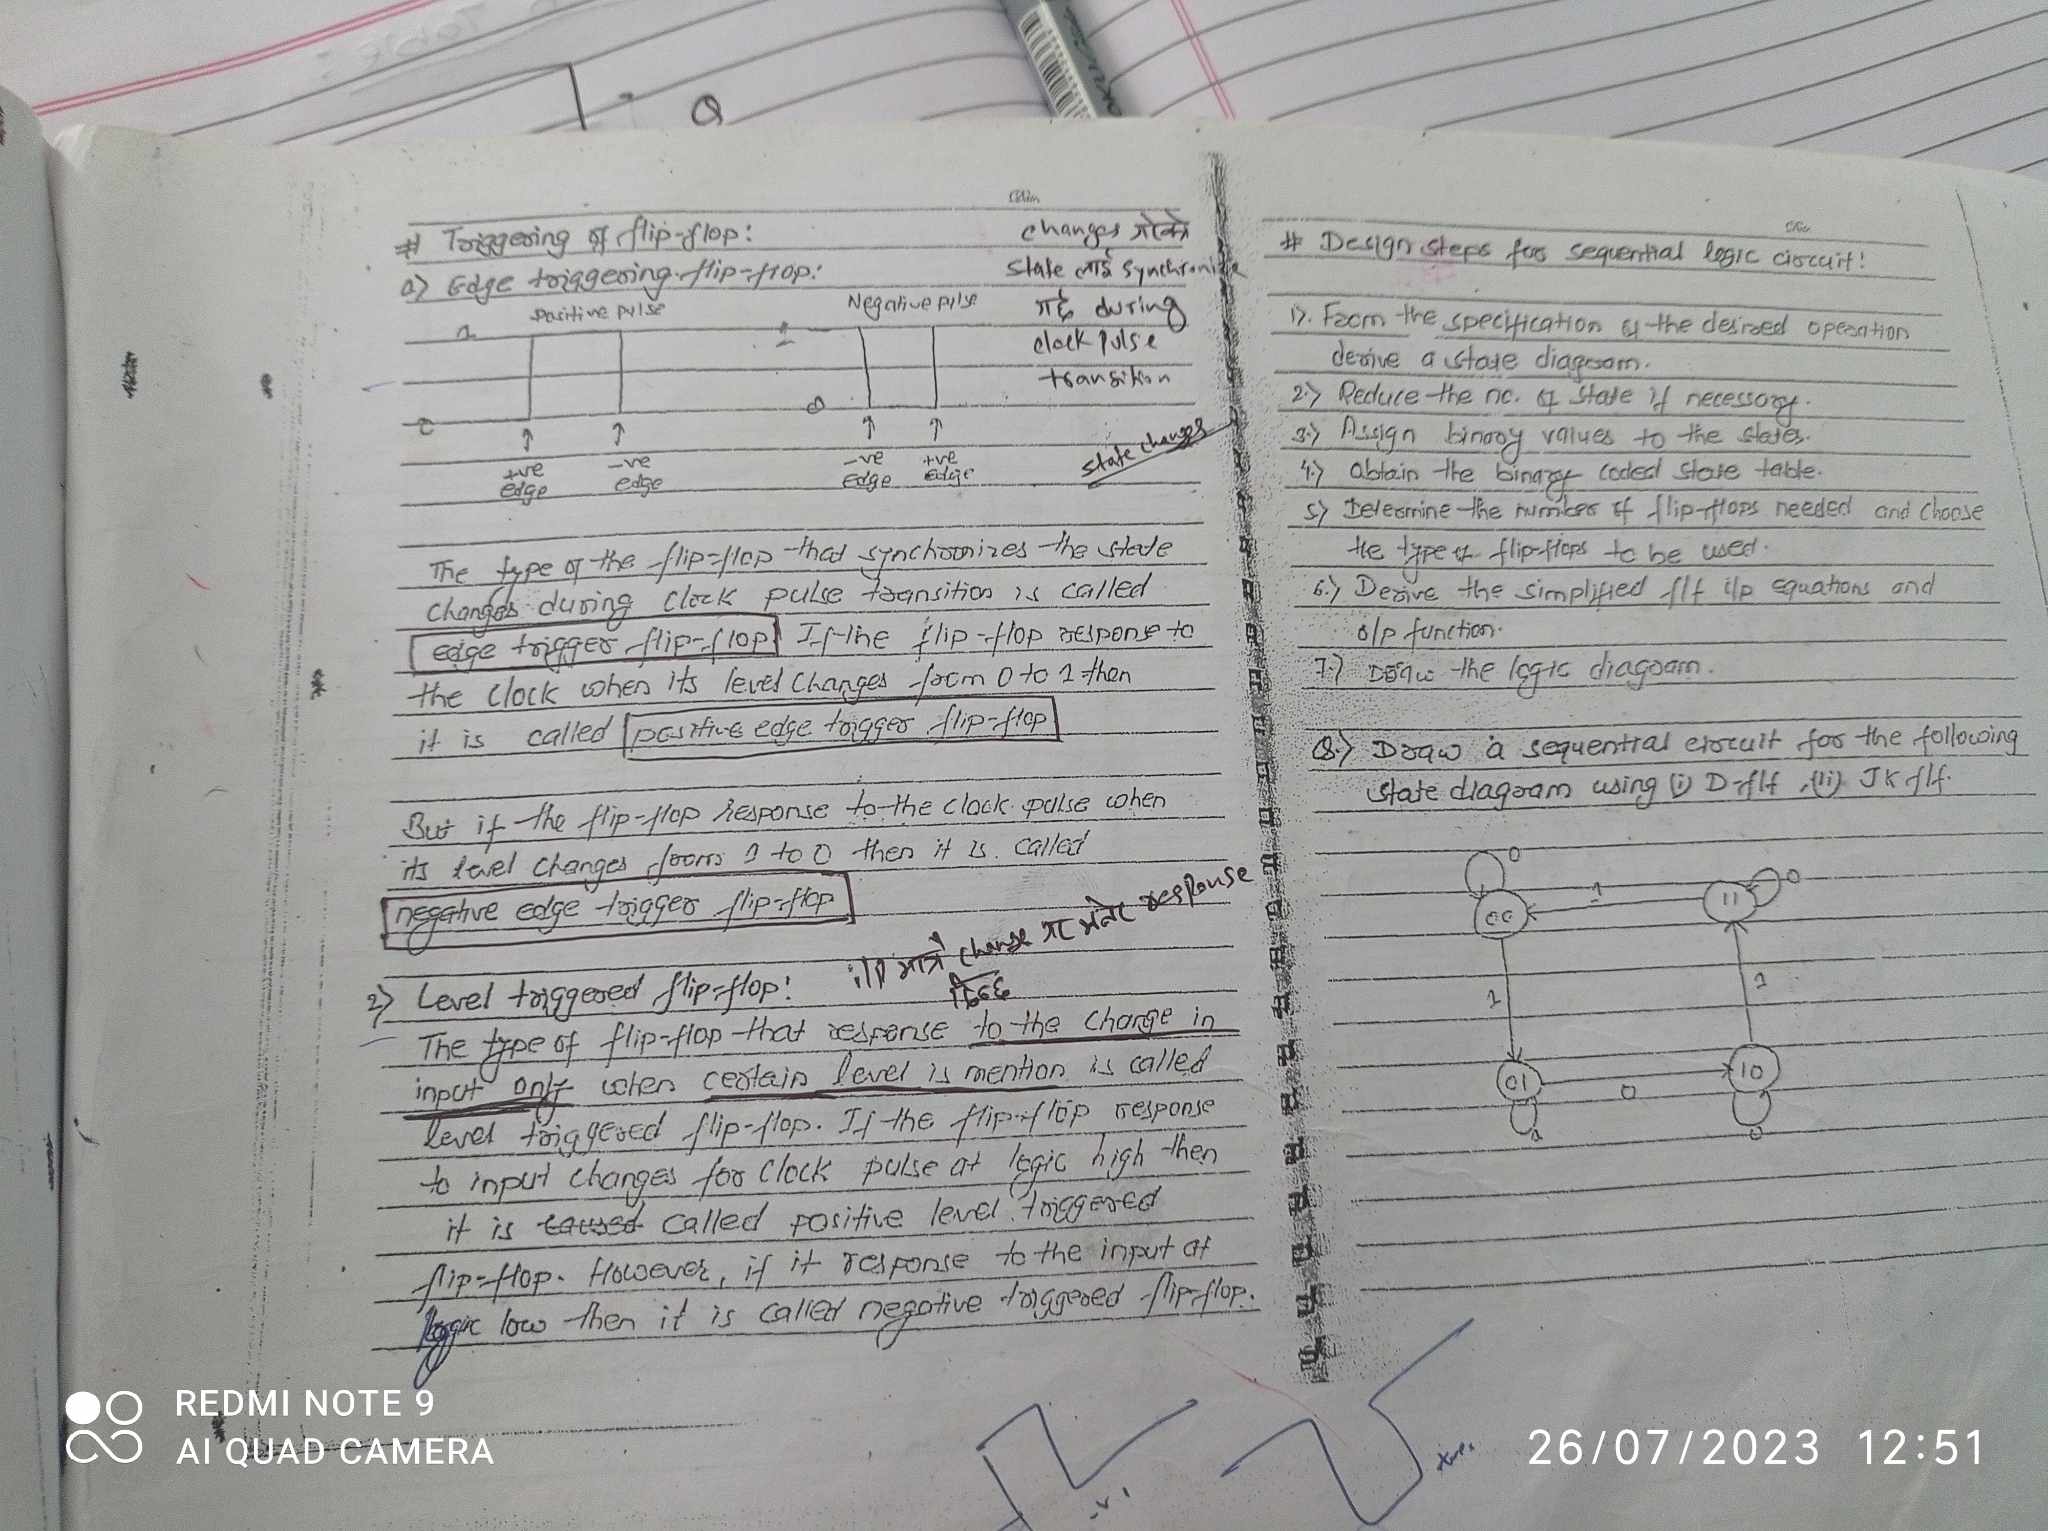 Q
# Triggering of flip-flop:
a) Edge triggering flip-flop:
Positive pulse
Negative pulse
1
1
0
0
+ve edge
-ve edge
-ve edge
+ve edge
changes
state लाई synchronize
गर्छ during
clock pulse
transition
state changes
The type of the flip-flop that synchronizes the state
changes during clock pulse transition is called
edge trigger flip-flop If the flip-flop response to
the clock when its level changes from 0 to 1 then
it is called positive edge trigger flip-flop
But if the flip-flop response to the clock pulse when
its level changes from 1 to 0 then it is called
negative edge trigger flip-flop
i/p मात्रै change response
दिन्छ
2) Level triggered flip-flop:
The type of flip-flop that response to the change in
input only when certain level is mention is called
level triggered flip-flop. If the flip-flop response
to input changes for clock pulse at logic high then
it is called positive level triggered
flip-flop. However, if it response to the input at
logic low then it is called negative triggered flip-flop.
# Design steps for sequential logic circuit:
1). From the specification of the desired operation
derive a state diagram.
2.) Reduce the no. of state if necessary.
3.) Assign binary values to the states.
4.) Obtain the binary coded state table.
5) Determine the number of flip-flops needed and choose
the type of flip-flops to be used.
6.) Derive the simplified f/f i/p equations and
o/p function.
7.) Draw the logic diagram.
Q.) Draw a sequential circuit for the following
state diagram using (i) D-f/f (ii) JK f/f.
0
1
0
00
11
1
1
01
10
0
1
0
REDMI NOTE 9
AI QUAD CAMERA
26/07/2023 12:51